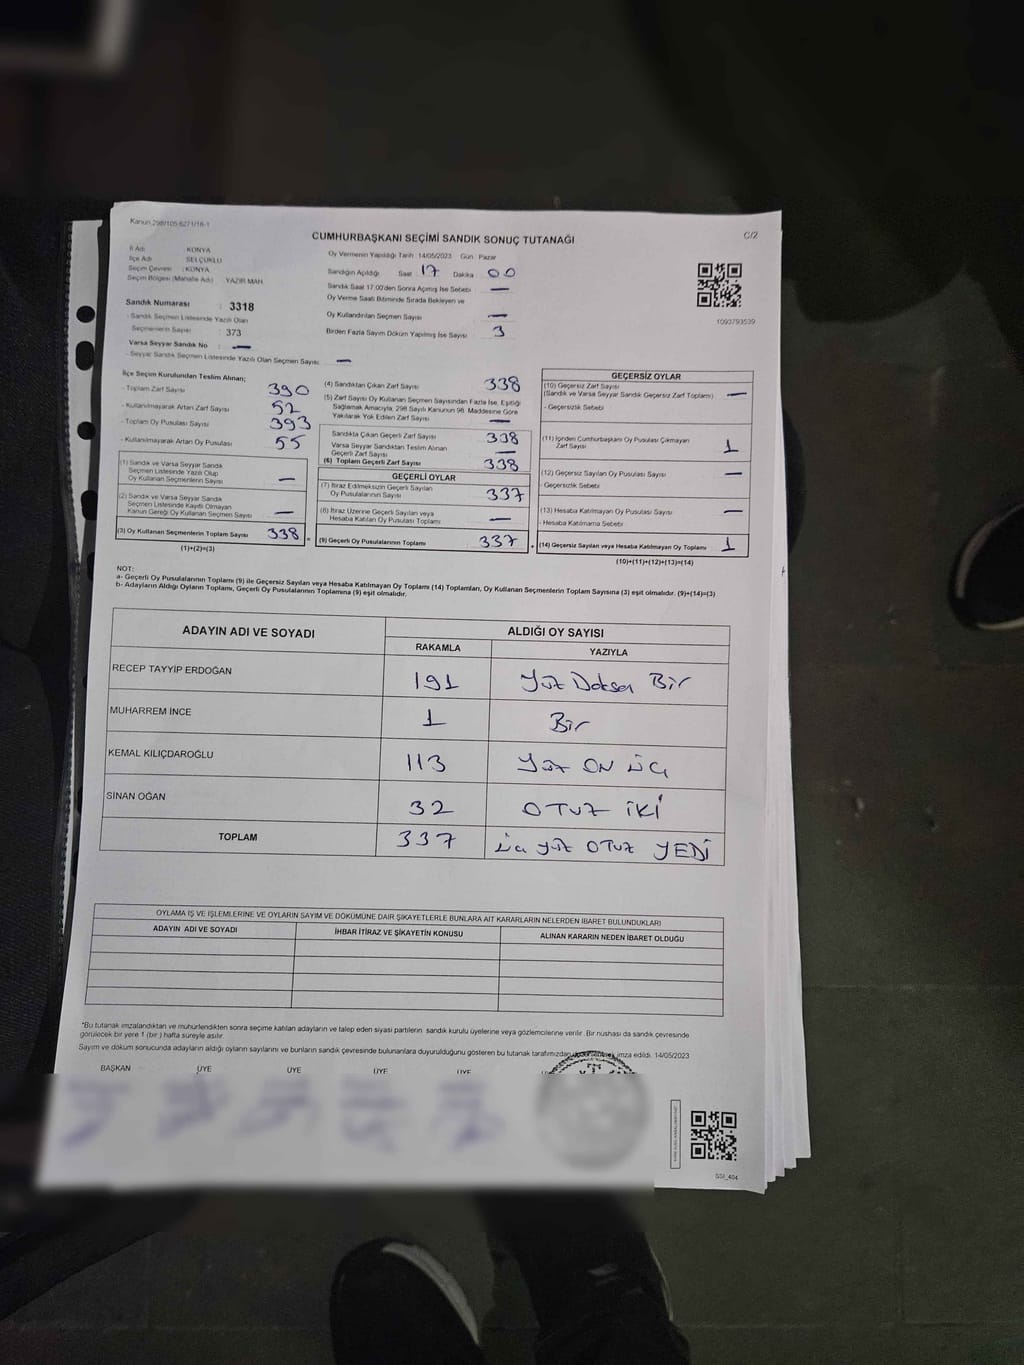 Kanun:298/105:6271/16-1
C/2
CUMHURBAŞKANI SEÇİMİ SANDIK SONUÇ TUTANAĞI
İl Adı : KONYA
İlçe Adı : SELÇUKLU
Seçim Çevresi : KONYA
Seçim Bölgesi (Mahalle Adı) : YAZIR MAH.
Oy Vermenin Yapıldığı Tarih :14/05/2023 Gün : Pazar
Sandığın Açıldığı Saat : 17 Dakika : 00
Sandık Saat 17:00'den Sonra Açılmış İse Sebebi : —
Oy Verme Saati Bitiminde Sırada Bekleyen ve
Oy Kullandırılan Seçmen Sayısı : —
Birden Fazla Sayım Döküm Yapılmış İse Sayısı : 3
1093793539
Sandık Numarası : 3318
- Sandık Seçmen Listesinde Yazılı Olan
Seçmenlerin Sayısı : 373
Varsa Seyyar Sandık No : —
- Seyyar Sandık Seçmen Listesinde Yazılı Olan Seçmen Sayısı: —
İlçe Seçim Kurulundan Teslim Alınan;
- Toplam Zarf Sayısı : 390
- Kullanılmayarak Artan Zarf Sayısı : 52
- Toplam Oy Pusulası Sayısı : 393
- Kullanılmayarak Artan Oy Pusulası : 55
(1) Sandık ve Varsa Seyyar Sandık
Seçmen Listesinde Yazılı Olup
Oy Kullanan Seçmenlerin Sayısı : —
(2) Sandık ve Varsa Seyyar Sandık
Seçmen Listesinde Kayıtlı Olmayan
Kanun Gereği Oy Kullanan Seçmen Sayısı : —
(3) Oy Kullanan Seçmenlerin Toplam Sayısı : 338 =
(1)+(2)=(3)
(4) Sandıktan Çıkan Zarf Sayısı : 338
(5) Zarf Sayısı Oy Kullanan Seçmen Sayısından Fazla İse, Eşitliği
Sağlamak Amacıyla, 298 Sayılı Kanunun 98. Maddesine Göre
Yakılarak Yok Edilen Zarf Sayısı : —
Sandıkta Çıkan Geçerli Zarf Sayısı : 338
Varsa Seyyar Sandıktan Teslim Alınan
Geçerli Zarf Sayısı : —
(6) Toplam Geçerli Zarf Sayısı : 338
GEÇERLİ OYLAR
(7) İtiraz Edilmeksizin Geçerli Sayılan
Oy Pusulalarının Sayısı : 337
(8) İtiraz Üzerine Geçerli Sayılan veya
Hesaba Katılan Oy Pusulası Toplamı : —
(9) Geçerli Oy Pusulalarının Toplamı : 337 +
GEÇERSİZ OYLAR
(10) Geçersiz Zarf Sayısı
(Sandık ve Varsa Seyyar Sandık Geçersiz Zarf Toplamı) : —
- Geçersizlik Sebebi :
(11) İçinden Cumhurbaşkanı Oy Pusulası Çıkmayan
Zarf Sayısı : 1
(12) Geçersiz Sayılan Oy Pusulası Sayısı : —
- Geçersizlik Sebebi :
(13) Hesaba Katılmayan Oy Pusulası Sayısı : —
- Hesaba Katılmama Sebebi :
(14) Geçersiz Sayılan veya Hesaba Katılmayan Oy Toplamı : 1
(10)+(11)+(12)+(13)=(14)
NOT:
a- Geçerli Oy Pusulalarının Toplamı (9) ile Geçersiz Sayılan veya Hesaba Katılmayan Oy Toplamı (14) Toplamları, Oy Kullanan Seçmenlerin Toplam Sayısına (3) eşit olmalıdır. (9)+(14)=(3)
b- Adayların Aldığı Oyların Toplamı, Geçerli Oy Pusulalarının Toplamına (9) eşit olmalıdır.
ADAYIN ADI VE SOYADI
ALDIĞI OY SAYISI
RAKAMLA YAZIYLA
RECEP TAYYİP ERDOĞAN 191 Yüz Doksan Bir
MUHARREM İNCE 1 Bir
KEMAL KILIÇDAROĞLU 113 Yüz ON üç
SİNAN OĞAN 32 OTUZ İKİ
TOPLAM 337 üç yüz OTUZ YEDİ
OYLAMA İŞ VE İŞLEMLERİNE VE OYLARIN SAYIM VE DÖKÜMÜNE DAİR ŞİKAYETLERLE BUNLARA AİT KARARLARIN NELERDEN İBARET BULUNDUKLARI
ADAYIN ADI VE SOYADI İHBAR İTİRAZ VE ŞİKAYETİN KONUSU ALINAN KARARIN NEDEN İBARET OLDUĞU
*Bu tutanak imzalandıktan ve mühürlendikten sonra seçime katılan adayların ve talep eden siyasi partilerin sandık kurulu üyelerine veya gözlemcilerine verilir. Bir nüshası da sandık çevresinde
görülecek bir yere 1 (bir) hafta süreyle asılır.
Sayım ve döküm sonucunda adayların aldığı oyların sayılarını ve bunların sandık çevresinde bulunanlara duyurulduğunu gösteren bu tutanak tarafımızdan imza edildi. 14/05/2023
BAŞKAN ÜYE ÜYE ÜYE ÜYE
SSI_404